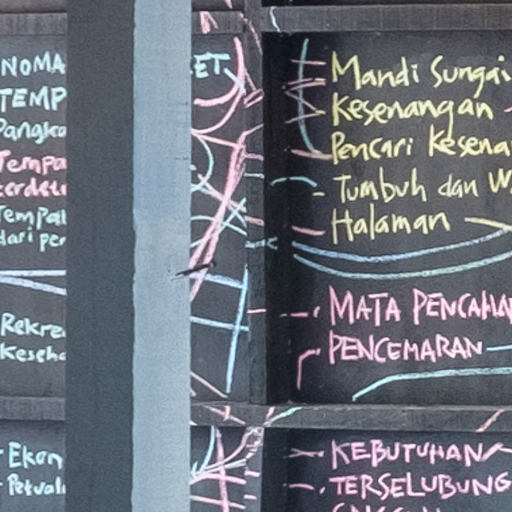 NOMA
ET
TEMP
Pangka
Tempa
terdet
Tempat
dari per
Rekre
Keseh
Ekon
Petual
Mandi Sungai
Kesenangan
Pencari Kesena
Tumbuh dan W
Halaman
MATA PENCAHA
PENCEMARAN
KEBUTUHAN
TERSELUBUNG